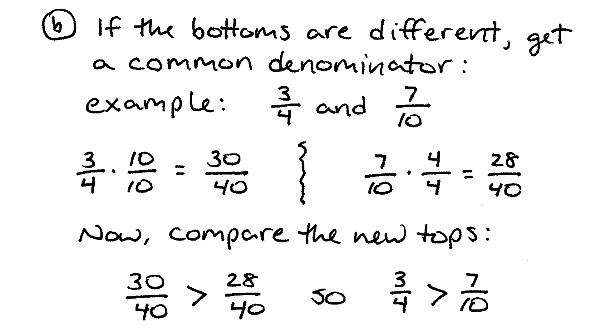 ⓑ If the bottoms are different, get
a common denominator:
example: 3/4 and 7/10
3/4 · 10/10 = 30/40 } 7/10 · 4/4 = 28/40
Now, compare the new tops:
30/40 > 28/40 so 3/4 > 7/10